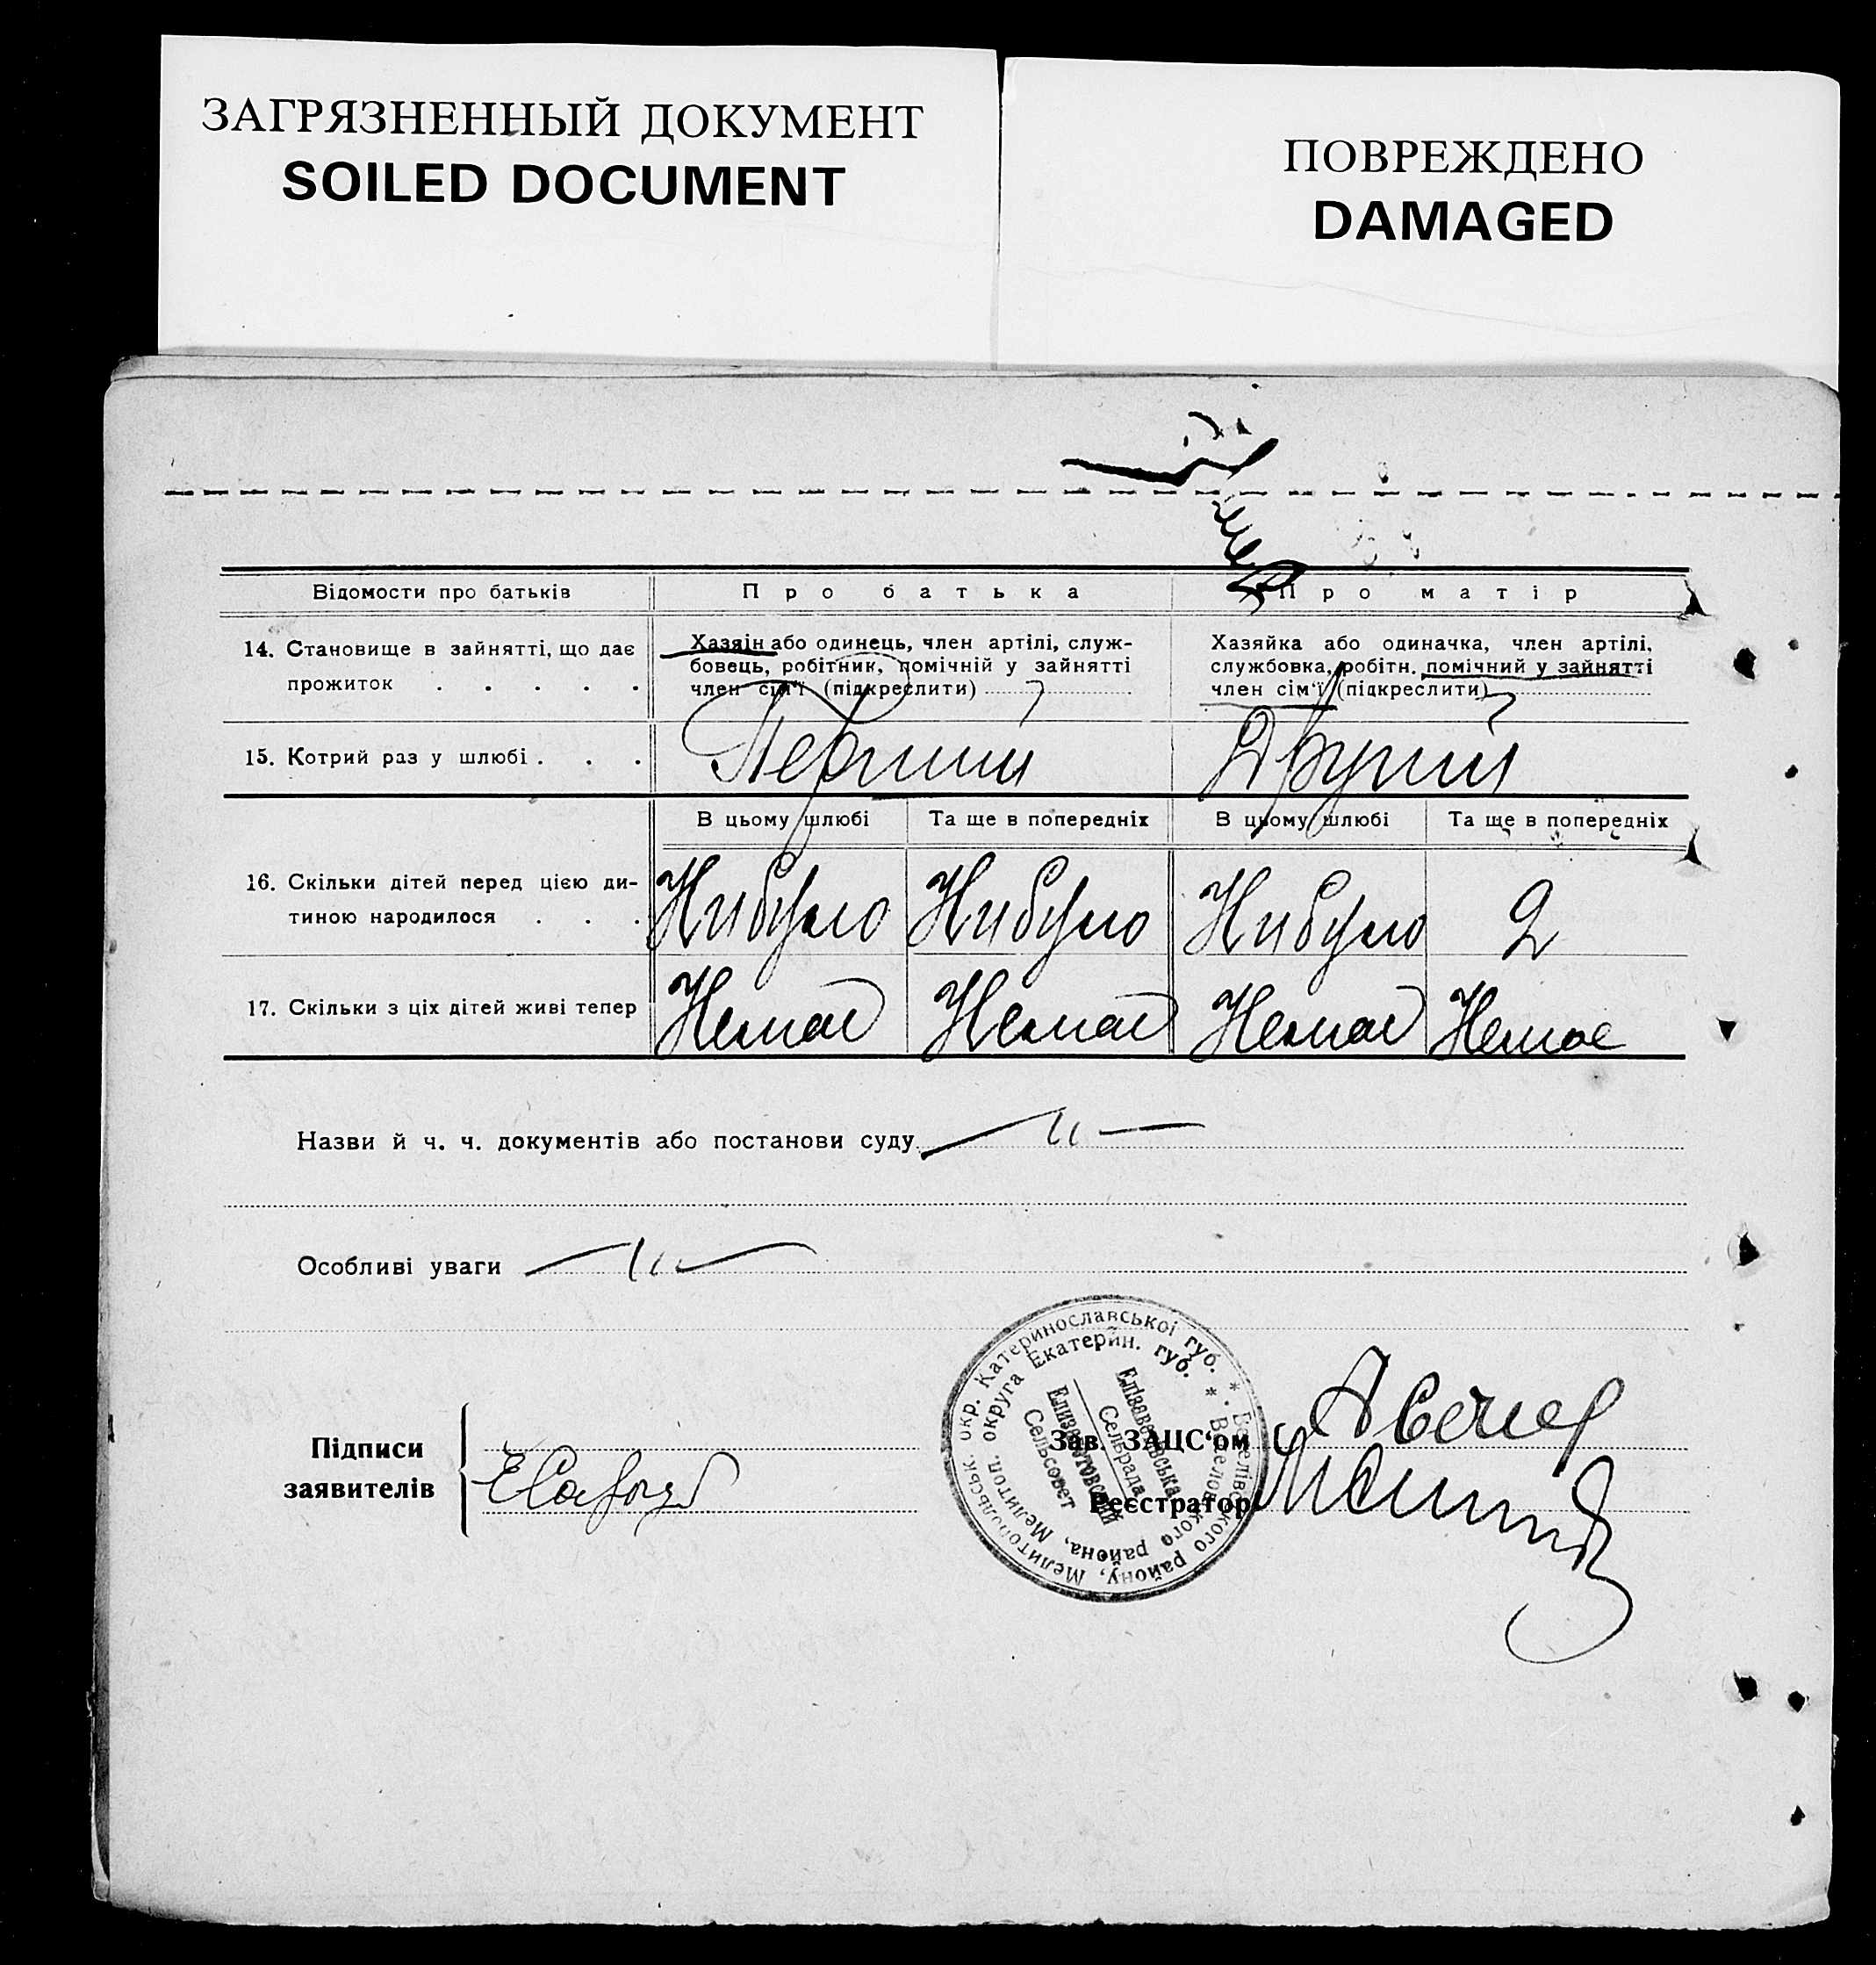 ЗАГРЯЗНЕННЫЙ ДОКУМЕНТ
SOILED DOCUMENT
ПОВРЕЖДЕНО
DAMAGED
Відомости про батьків
Про батька
Про матір
14. Становище в зайнятті, що дає
прожиток . . . . .
Хазяін або одинець, член артілі, служ-
бовець, робітник, помічній у зайнятті
член сім'ї (підкреслити)
Хазяйка або одиначка, член артілі,
службовка, робітн. помічний у зайнятті
член сім'ї (підкреслити)
15. Котрий раз у шлюбі . . .
Перший
Другий
В цьому шлюбі
Та ще в попередніх
В цьому шлюбі
Та ще в попередніх
16. Скільки дітей перед цією ди-
тиною народилося . . .
Нибуло
Нибуло
Нибуло
2
17. Скільки з ціх дітей живі тепер
Немає
Немає
Немає
Немає
Назви й ч. ч. документів або постанови суду — " —
Особливі уваги — " —
Підписи
заявителів
Зав. ЗАЦС'ом
Реєстратор
Мелитопольськ. окр. Катеринославської губ. * Веселівського району,
Мелитоп. округа Екатерин. губ. * Веселовского района,
Елізаветівська
Сельрада
Елизаветовский
Сельсовет